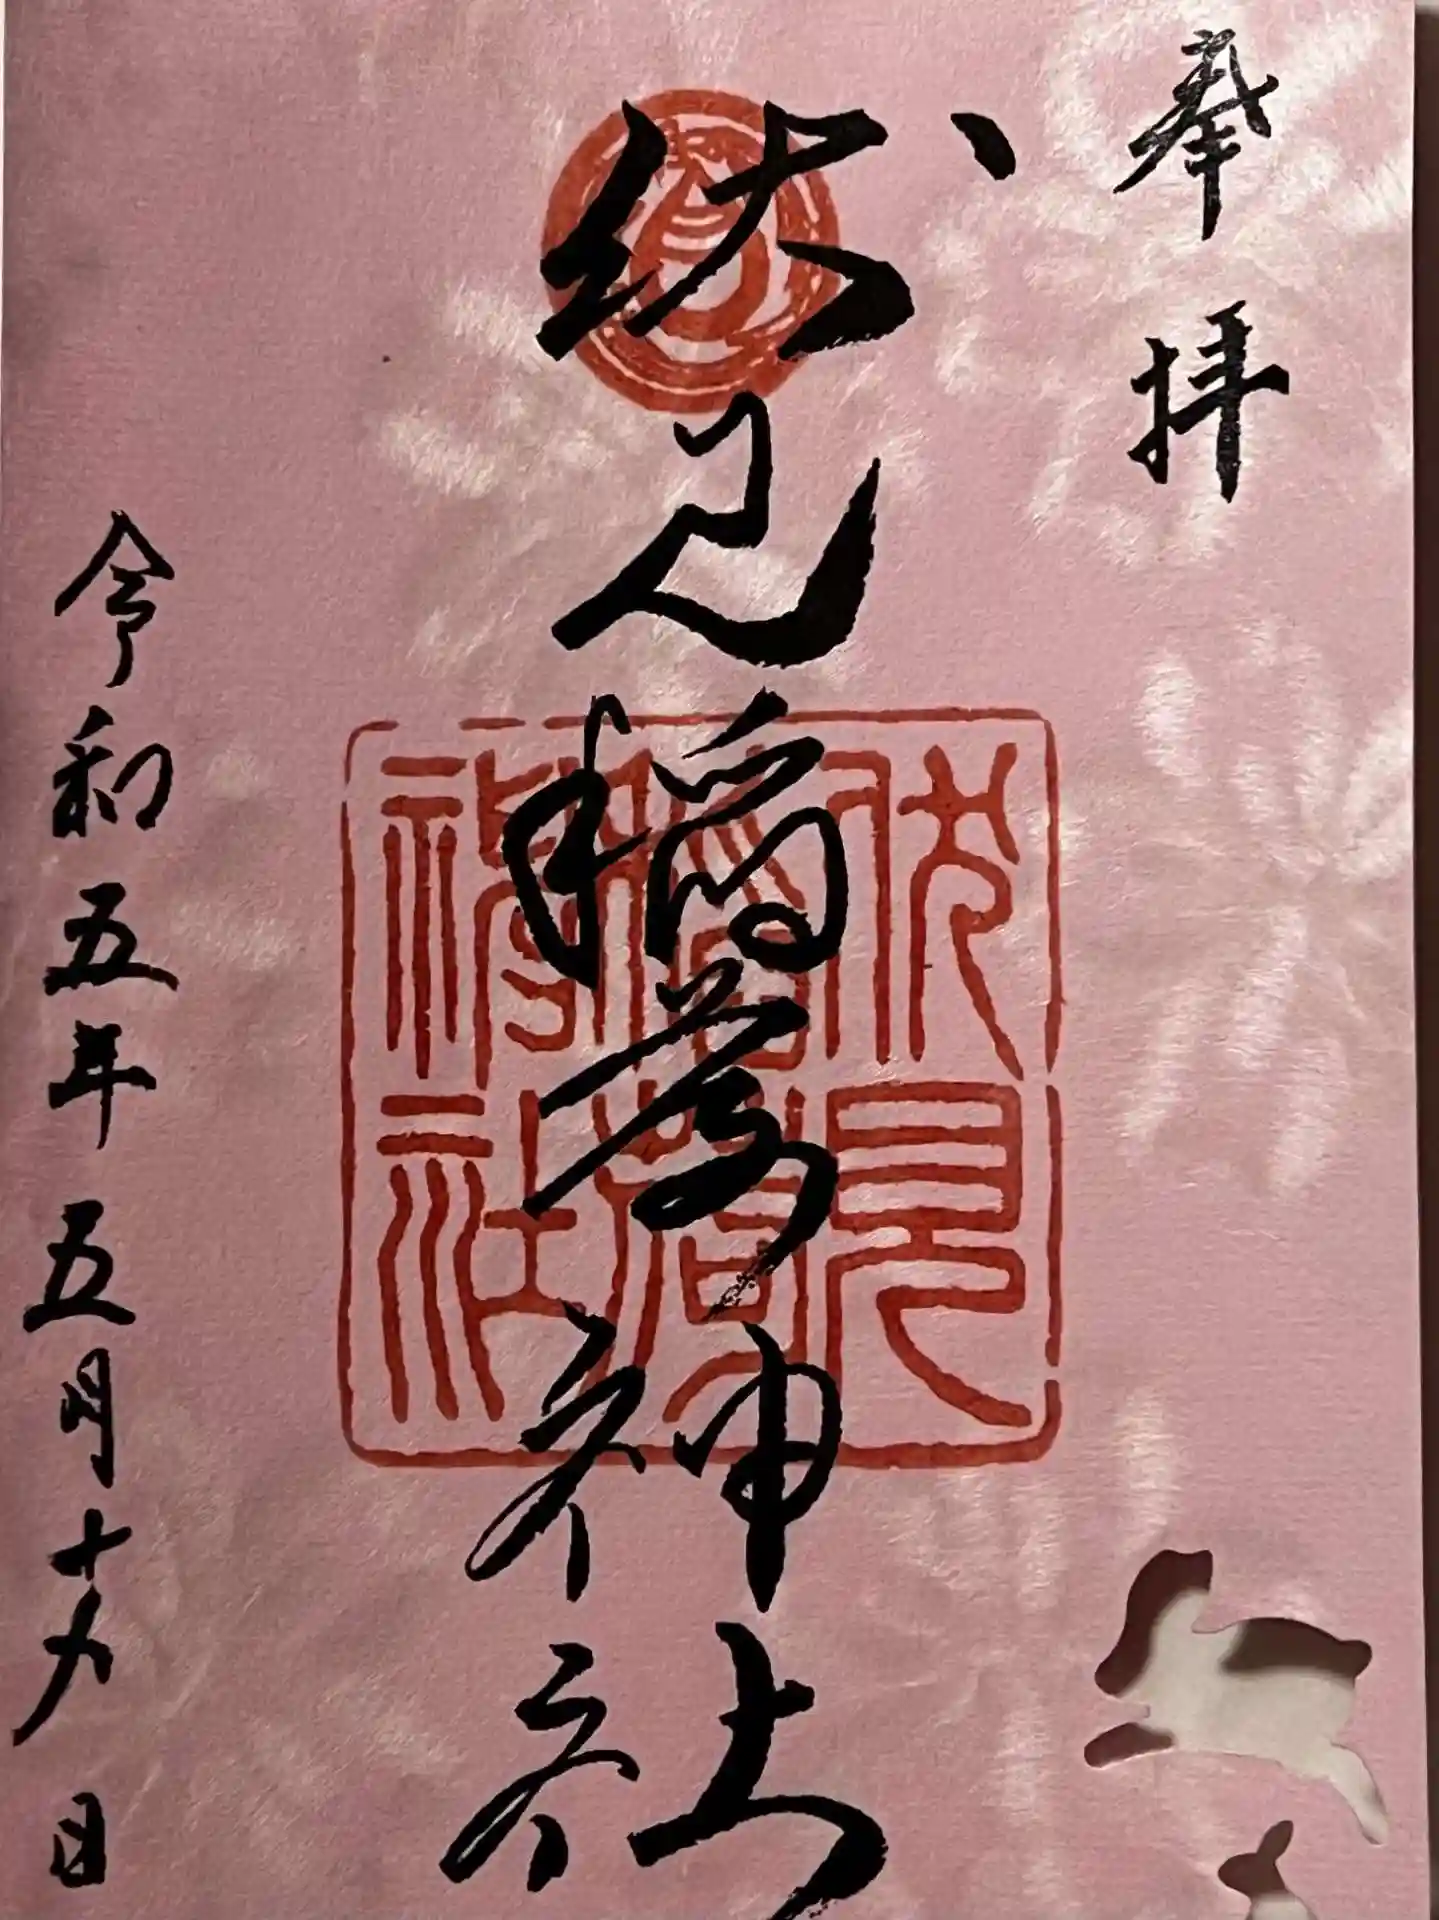 奉拝
伏見稲荷神社
伏見
稲荷
神社
令和五年五月十九日